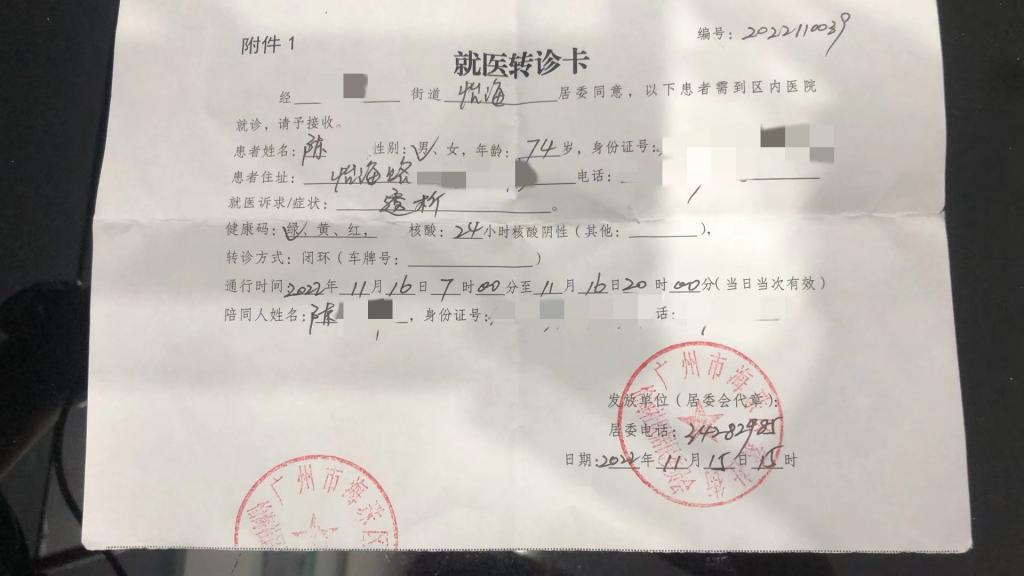 附件 1
编号：2022110039
就医转诊卡
经 街道 怡海 居委同意，以下患者需到区内医院
就诊，请予接收。
患者姓名：陈 性别：男、女，年龄：74岁，身份证号：
患者住址：怡海路 电话：
就医诉求/症状：透析。
健康码：绿、黄、红， 核酸：24小时核酸阴性（其他：），
转诊方式：闭环（车牌号：）
通行时间2022年11月16日7时00分至11月16日20时00分（当日当次有效）
陪同人姓名：陈，身份证号： 话：
发放单位（居委会代章）：
居委电话：34282985
日期：2022年11月15日15时
广州市海珠区
广州市海珠区